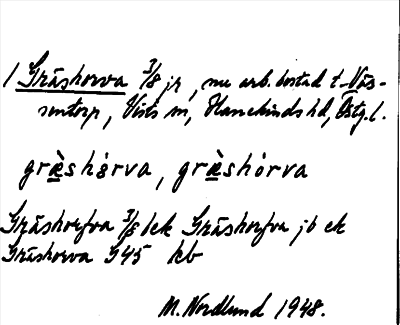 1 Gräshorva 3/8 jr, nu arb. bostad t. Väs-
sentorp, Vists sn, Hanekinds hd, Östg. l.
græ̀shȯrva, græ̀shȯrva
Gräshorfva 3/8 lek Gräshorfva jb ek
Gräshorva G45 kb
M. Nordlund 1948.